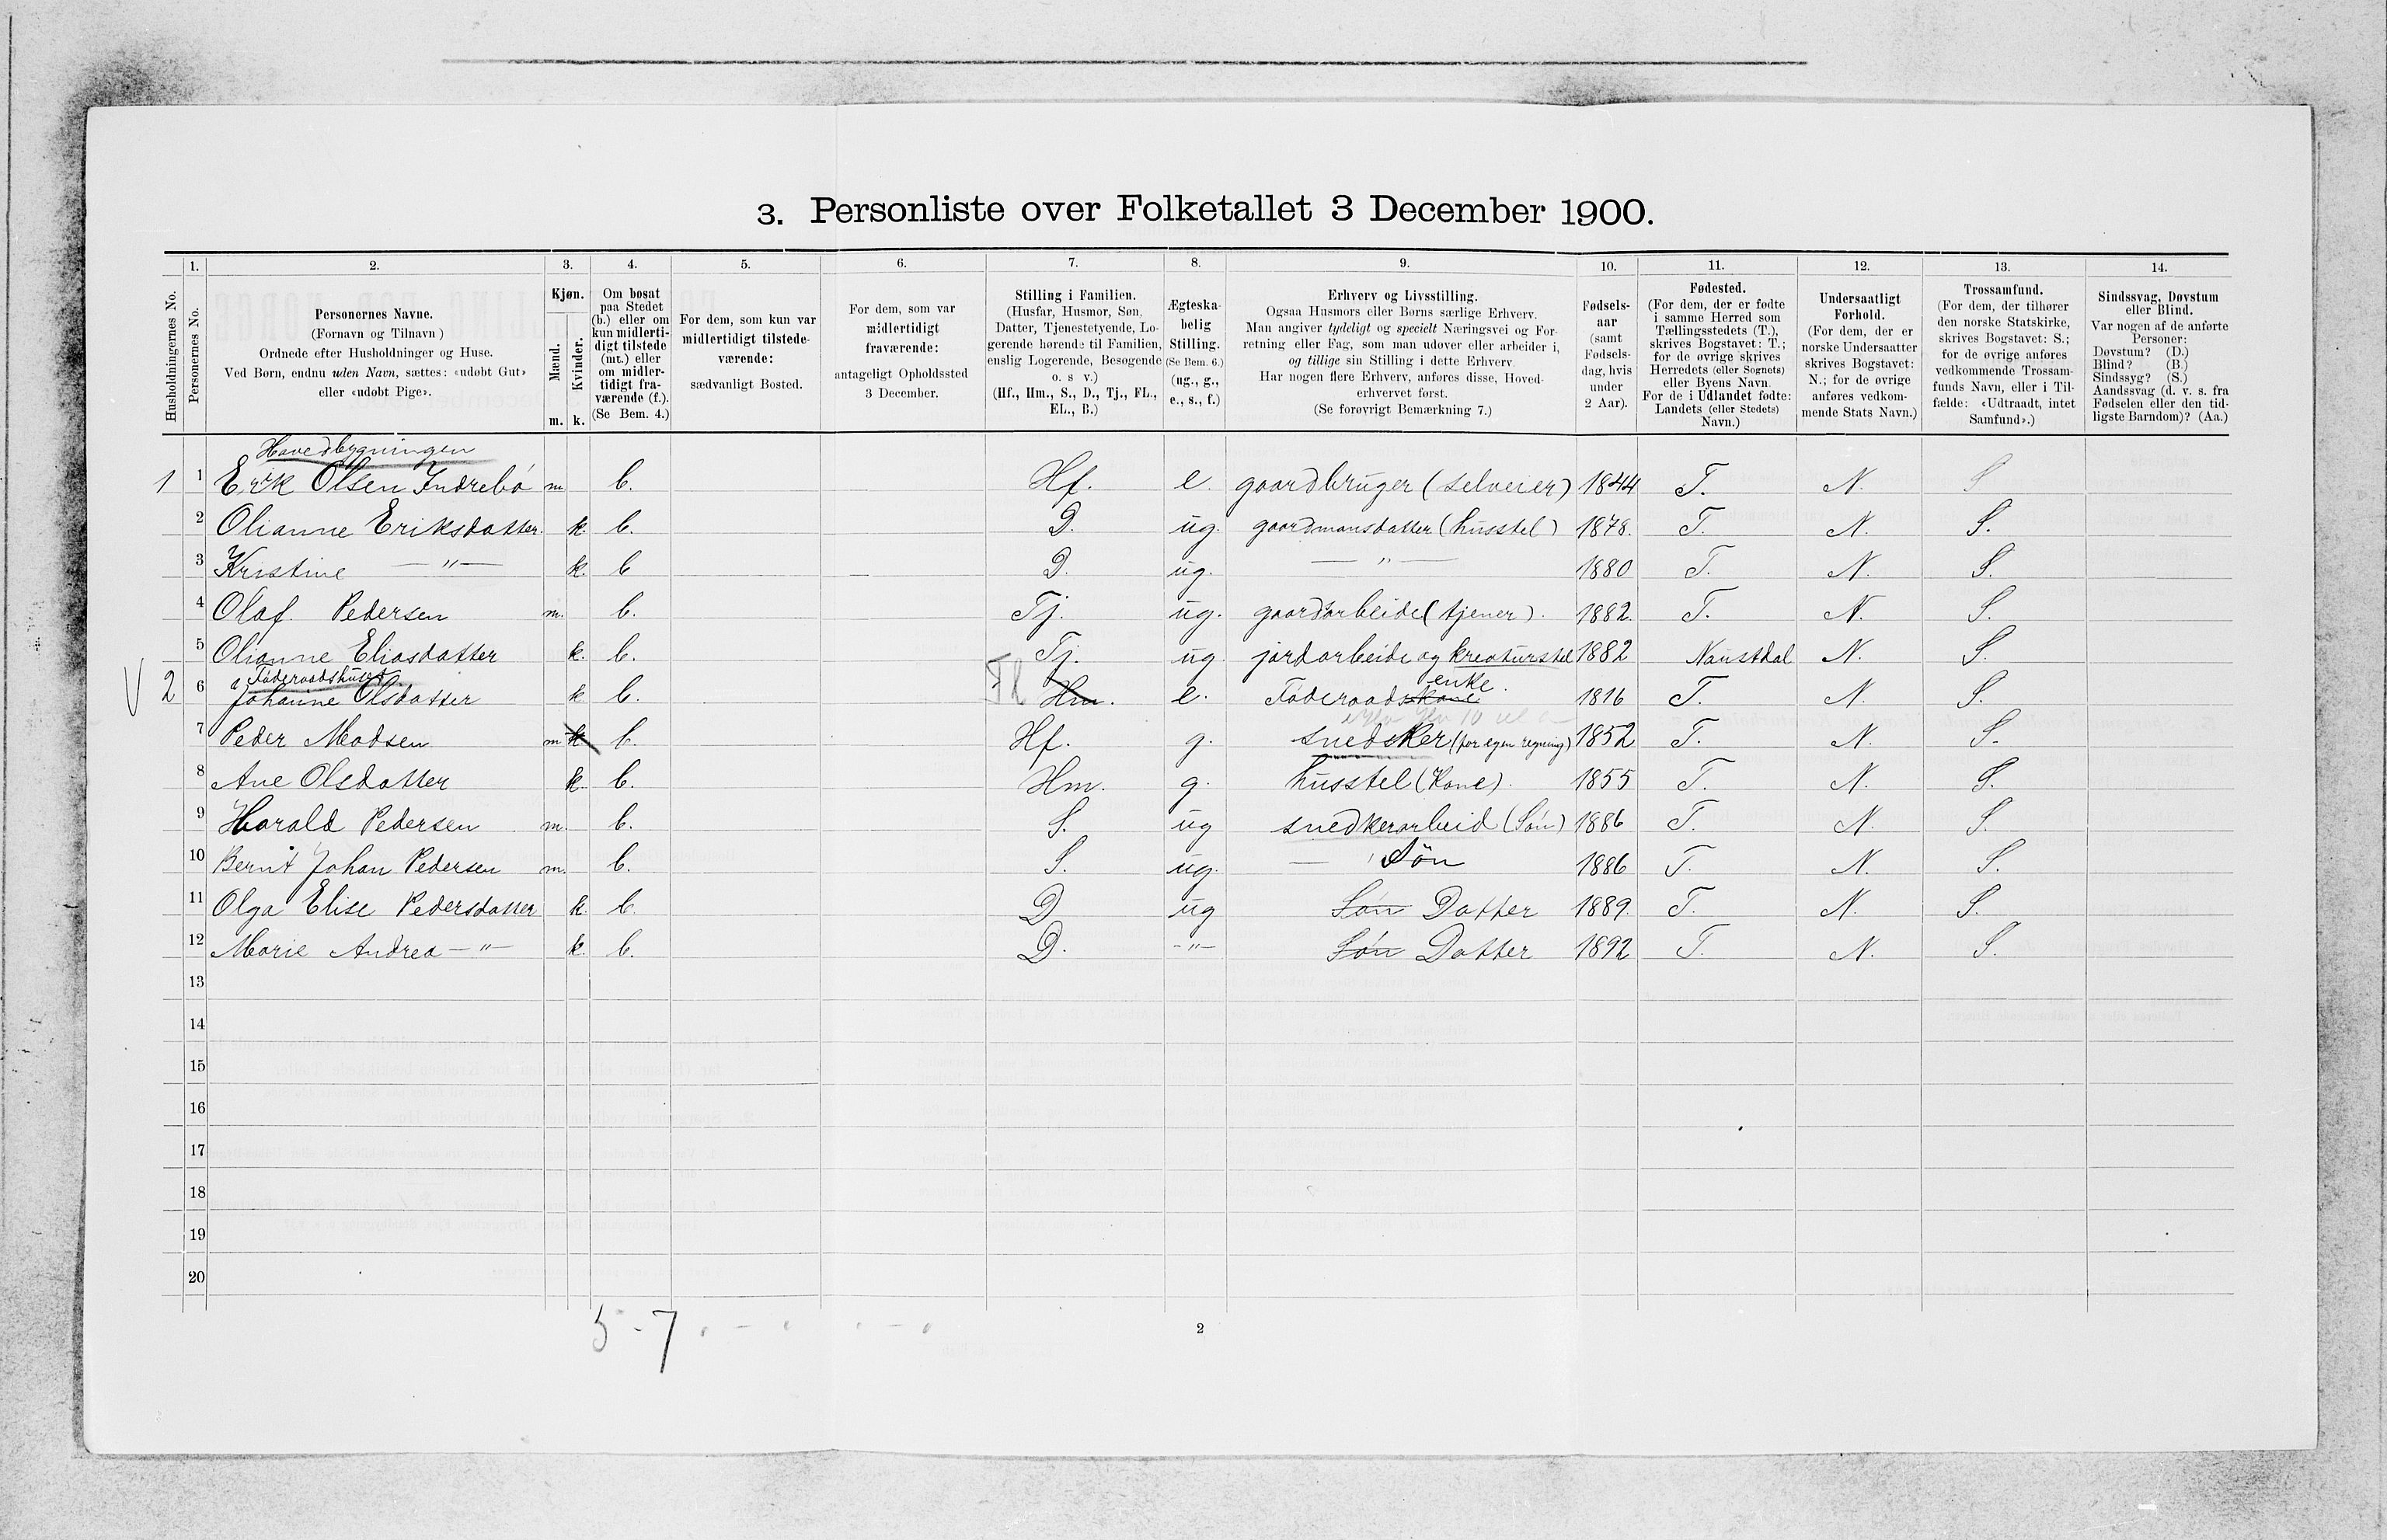 3. Personliste over Folketallet 3 December 1900.
1. 2. 3. 4. 5. 6. 7. 8. 9. 10. 11. 12. 13. 14.
Husholdningernes No.
Personernes No.
Personernes Navne.
(Fornavn og Tilnavn)
Ordnede efter Husholdninger og Huse.
Ved Børn, endnu uden Navn, sættes: «udøbt Gut»
eller «udøbt Pige».
Kjøn.
Mænd.
Kvinder.
m. k.
Om bosat
paa Stedet
(b.) eller om
kun midlerti-
digt tilstede
(mt.) eller
om midler-
tidigt fra-
værende (f.).
(Se Bem. 4.)
For dem, som kun var
midlertidigt tilstede-
værende:
sædvanligt Bosted.
For dem, som var
midlertidigt
fraværende:
antageligt Opholdssted
3 December.
Stilling i Familien.
(Husfar, Husmor, Søn,
Datter, Tjenestetyende, Lo-
gerende hørende til Familien,
enslig Logerende, Besøgende
o. s v.)
(Hf., Hm., S., D., Tj., FL.,
EL., B.)
Ægteska-
belig
Stilling.
(Se Bem. 6.)
(ug., g.,
e., s., f.)
Erhverv og Livsstilling.
Ogsaa Husmors eller Børns særlige Erhverv.
Man angiver tydeligt og specielt Næringsvei og For-
retning eller Fag, som man udøver eller arbeider i,
og tillige sin Stilling i dette Erhverv.
Har nogen flere Erhverv, anføres disse, Hoved-
erhvervet først.
(Se forøvrigt Bemærkning 7.)
Fødsels-
aar
(samt
Fødsels-
dag, hvis
under
2 Aar).
Fødested.
(For dem, der er fødte
i samme Herred som
Tællingsstedets (T.),
skrives Bogstavet: T.;
for de øvrige skrives
Herredets (eller Sognets)
eller Byens Navn.
For de i Udlandet fødte:
Landets (eller Stedets)
Navn.)
Undersaatligt
Forhold.
(For dem, der er
norske Undersaatter
skrives Bogstavet:
N.; for de øvrige
anføres vedkom-
mende Stats Navn.)
Trossamfund.
(For dem, der tilhører
den norske Statskirke,
skrives Bogstavet: S.;
for de øvrige anføres
vedkommende Trossam-
funds Navn, eller i Til-
fælde: «Udtraadt, intet
Samfund».)
Sindssvag, Døvstum
eller Blind.
Var nogen af de anførte
Personer:
Døvstum? (D.)
Blind? (B.)
Sindssyg? (S.)
Aandssvag (d. v. s. fra
Fødselen eller den tid-
ligste Barndom)? (Aa.)
Hovedbygningen
1 1 Erik Olsen Indrebø m b. Hf. e. gaardbruger (selveier) 1844 T. N. S
2 Olianne Eriksdatter. k. b. D. ug. gaardmansdatter (husstel) 1878. T. N. S.
3 Kristine —"— k. b — D. ug. —"— 1880 T. N. S.
4 Olaf. Pedersen m. b. Tj. ug. gaardsarbeide (tjener). 1882. T. N. S.
5 Olianne Eliasdatter k. b. Tj. ug jordarbeide og kreaturstel 1882 Naustdal N. S.
Føderaadshuset enke.
V 2 6 Johanne Olsdatter k b. Fl Hm. e. Føderaadskone 1816 T. N. S.
7 Peder Madsen m k b. Hf. g. snedker (for egen regning) 1852 T. N. S.
8 Ane Olsdatter k. b. Hm. g. husstel (Kone). 1855 T. N. S.
9 Harald Pedersen m. b. S. ug snedkerarbeid (Søn) 1886 T. N. S.
10 Bernt Johan Pedersen m. b. S. ug. — Søn 1886 T. N. S.
11 Olga Elise Pedersdatter k b. D ug Søn Datter 1889. T. N. S.
12 Marie Andrea —"— k. b. D. -"- Søn Datter 1892 T. N. S.
13
14
15
16
17
18
19
20
5-7
2